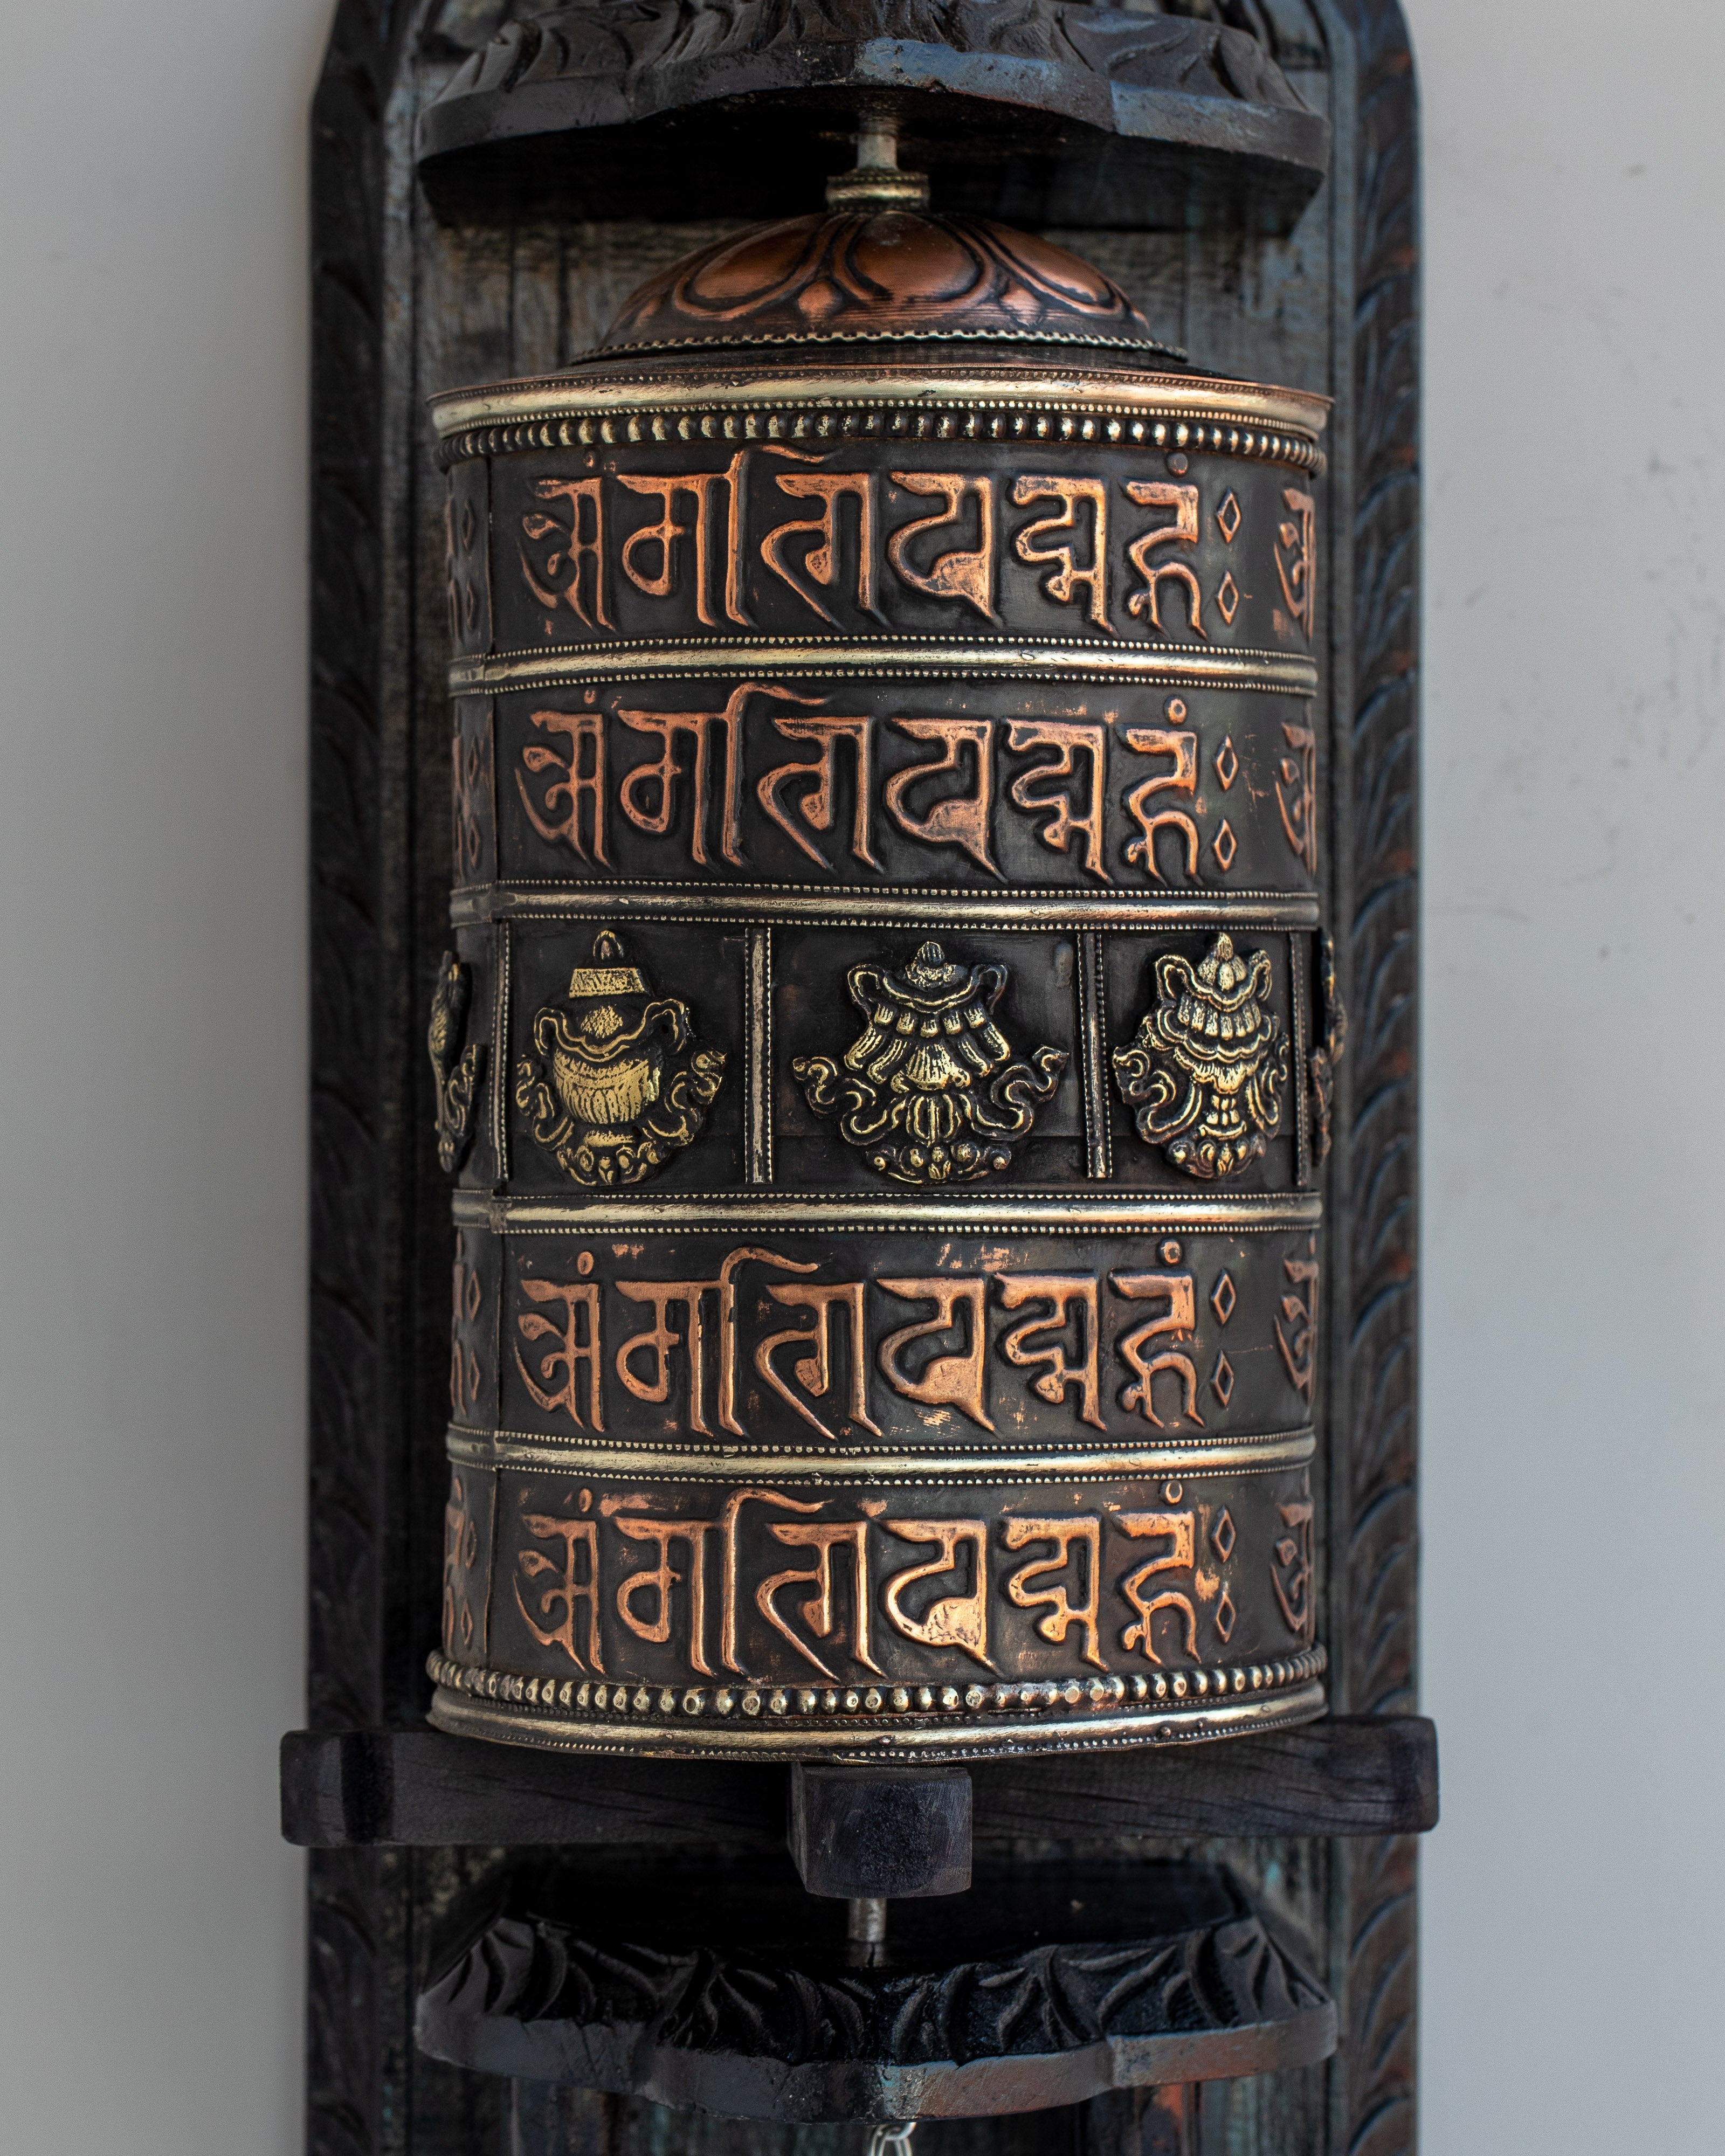 ओं मणिपद्मे हूंः
ओं मणिपद्मे हूंः
ओं मणिपद्मे हूंः
ओं मणिपद्मे हूंः